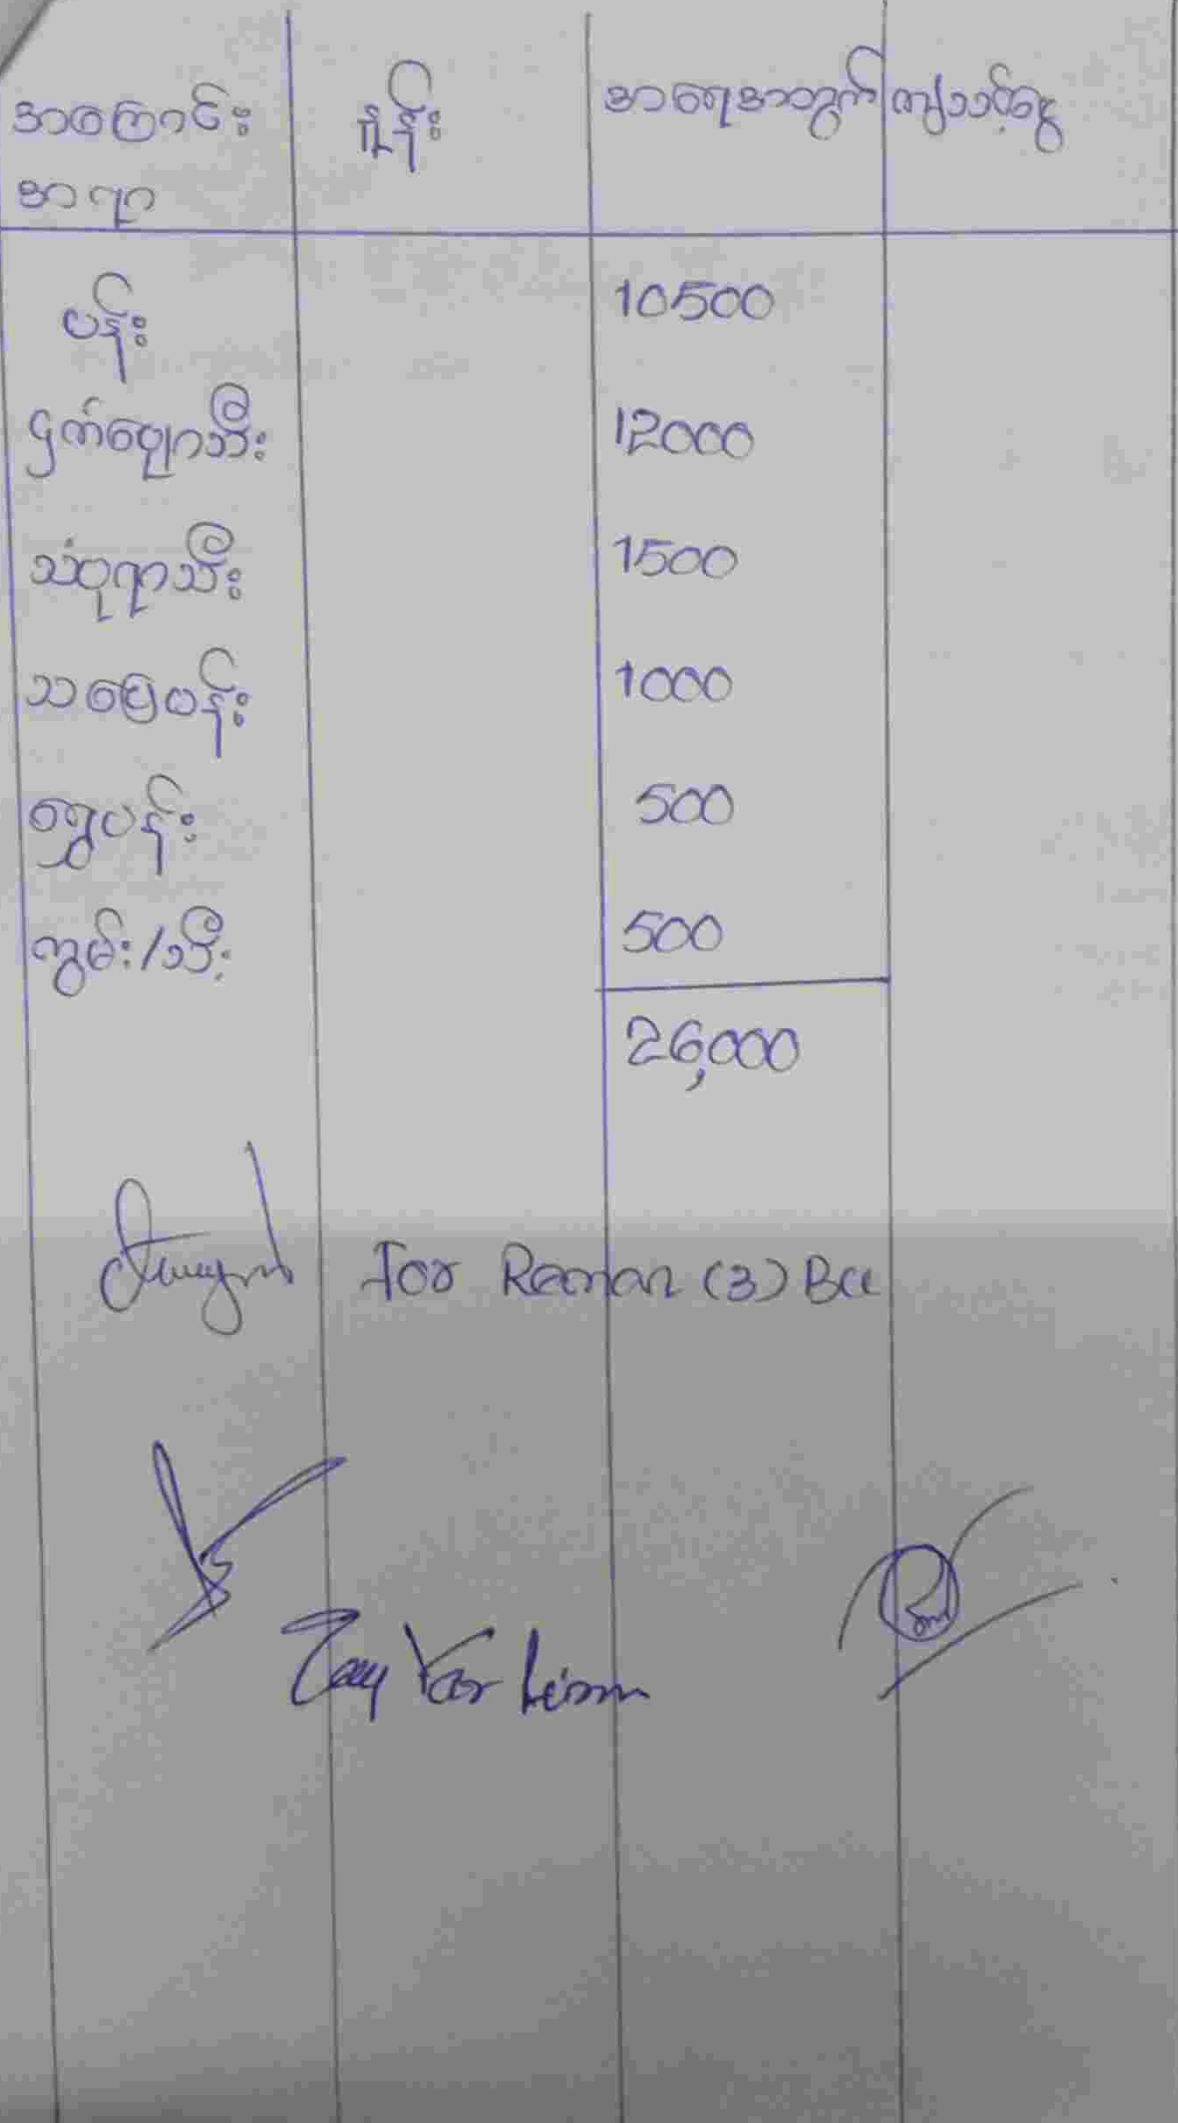 အကြောင်း နှုန်း အရေအတွက် ကျသင့်ငွေ
အရာ
ပန်း 10500
ငှက်ပျောသီး 12000
သံပုရာသီး 1500
သပြေပန်း 1000
ရွှေပန်း 500
ကွမ်း/သီး 500
26,000
For Raman (3) Bcc
Zay Yar Linn